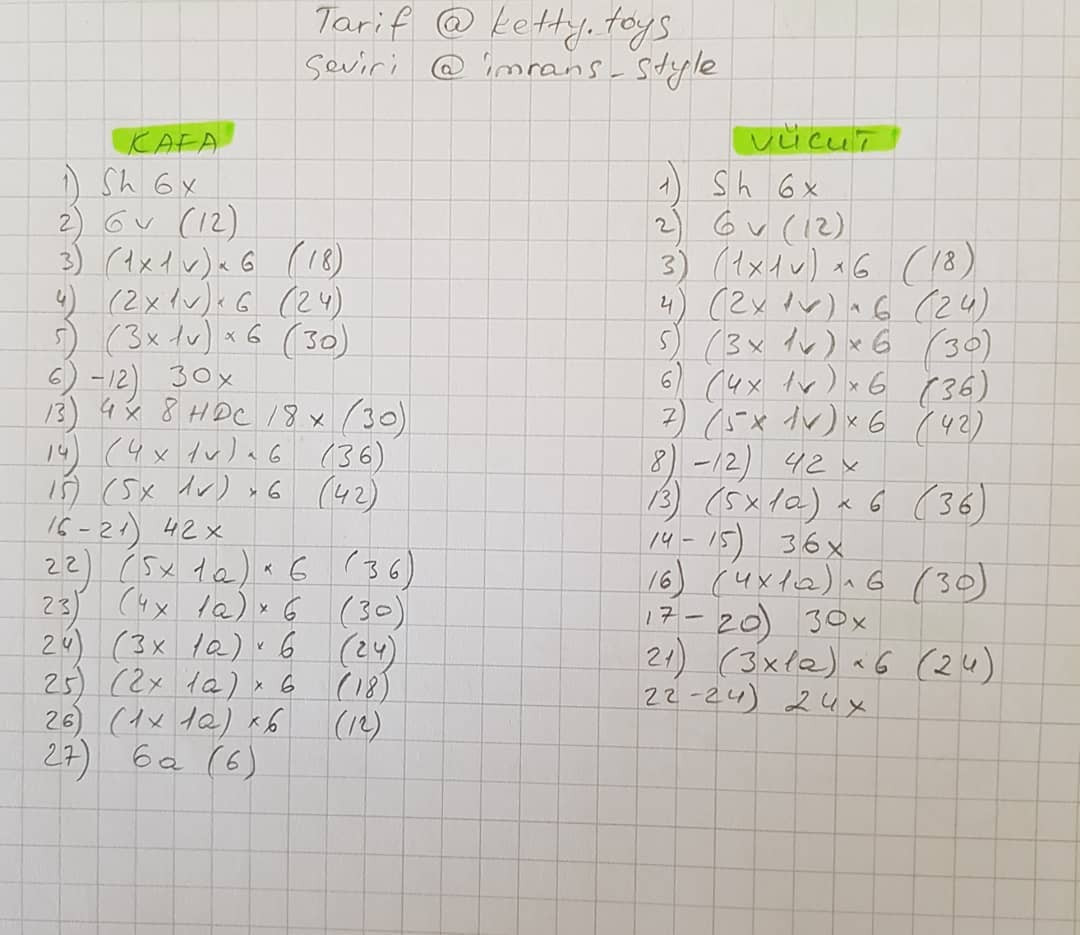 Tarif @ ketty.toys
Çeviri @ imrans_style
KAFA
1) Sh 6x
2) 6v (12)
3) (1x1v)×6 (18)
4) (2x1v)×6 (24)
5) (3x1v)×6 (30)
6)-12) 30x
13) 4x 8HDC 18x (30)
14) (4x 1v)×6 (36)
15) (5x 1v)×6 (42)
16-21) 42x
22) (5x 1a)×6 (36)
23) (4x 1a)×6 (30)
24) (3x 1a)×6 (24)
25) (2x 1a)×6 (18)
26) (1x 1a)×6 (12)
27) 6a (6)
VÜCUT
1) Sh 6x
2) 6v (12)
3) (1x1v)×6 (18)
4) (2x 1v)×6 (24)
5) (3x 1v)×6 (30)
6) (4x 1v)×6 (36)
7) (5x 1v)×6 (42)
8)-12) 42x
13) (5x1a)×6 (36)
14-15) 36x
16) (4x1a)×6 (30)
17-20) 30x
21) (3x1a)×6 (24)
22-24) 24x